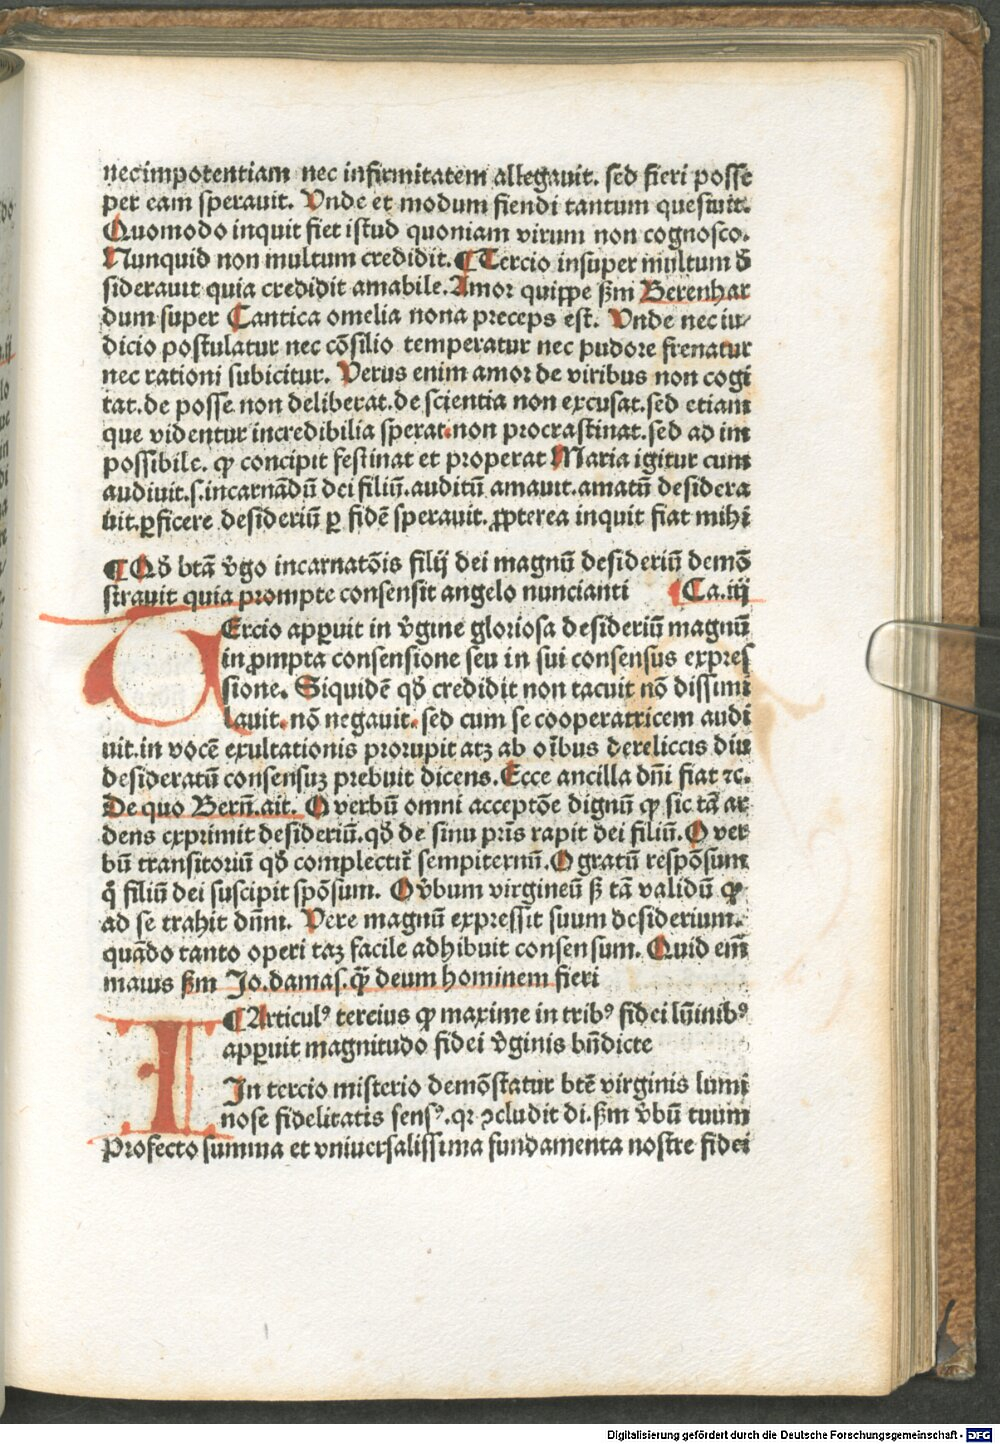 nec impotentiam nec infirmitatem allegauit. sed fieri posse
per eam sperauit. Vnde et modum fiendi tantum quesiuit.
Quomodo inquit fiet istud quoniam virum non cognosco.
Nunquid non multum credidit. ¶ Tercio insuper multum d̄
siderauit quia credidit amabile. Amor quippe ẜm Berenhar
dum super Cantica omelia nona preceps est. Vnde nec iu⸗
dicio postulatur nec cōsilio temperatur nec pudore frenatur
nec rationi subicitur. Verus enim amor de viribus non cogi
tat. de posse non deliberat. de scientia non excusat. sed etiam
que videntur incredibilia sperat. non procrastinat. sed ad im
possibile. ꝙ concipit festinat et properat Maria igitur cum
audiuit. s. incarnādū dei filiū. auditū amauit. amatū desidera
uit. ꝑficere desideriū ꝑ fidē sperauit. ꝓpterea inquit fiat mihi
¶ Qd̄ btā v̄go incarnatōis filij dei magnū desideriū demō
strauit quia prompte consensit angelo nuncianti ¶ Ca. iij
TErcio apꝑuit in v̄gine gloriosa desideriū magnū
in ꝓmpta consensione seu in sui consensus expres
sione. Siquidē qd̄ credidit non tacuit nō dissimi
lauit. nō negauit. sed cum se cooperatricem audi
uit. in vocē exultationis prorupit atꝫ ab oībus derelictis diu
desideratū consensuꝫ prebuit dicens. Ecce ancilla dn̄i fiat ⁊c.
De quo Bern̄. ait. O verbū omni acceptōe dignū ꝙ sic tā ar
dens exprimit desideriū. qd̄ de sinu pr̄is rapit dei filiū. O ver
bū transitoriū qd̄ complectit᷑ sempiternū. O gratū respōsum
q̄ filiū dei suscipit spōsum. O v̄bum virgineū ẜ tā validū ꝙ
ad se trahit dn̄m. Vere magnū expressit suum desiderium.
quādo tanto operi taꝫ facile adhibuit consensum. Quid em̄
maius ẜm Jo. damas. q̄ȝ deum hominem fieri
¶ Articulꝰ tercius ꝙ maxime in tribꝰ fidei lūinibꝰ
apꝑuit magnitudo fidei v̄ginis bn̄dicte
IIn tercio misterio demōstatur btē virginis lumi
nose fidelitatis sensꝰ. qꝛ ↄcludit di. ẜm v̄bū tuum
Profecto summa et vniuersalissima fundamenta nostre fidei
Digitalisierung gefördert durch die Deutsche Forschungsgemeinschaft - DFG